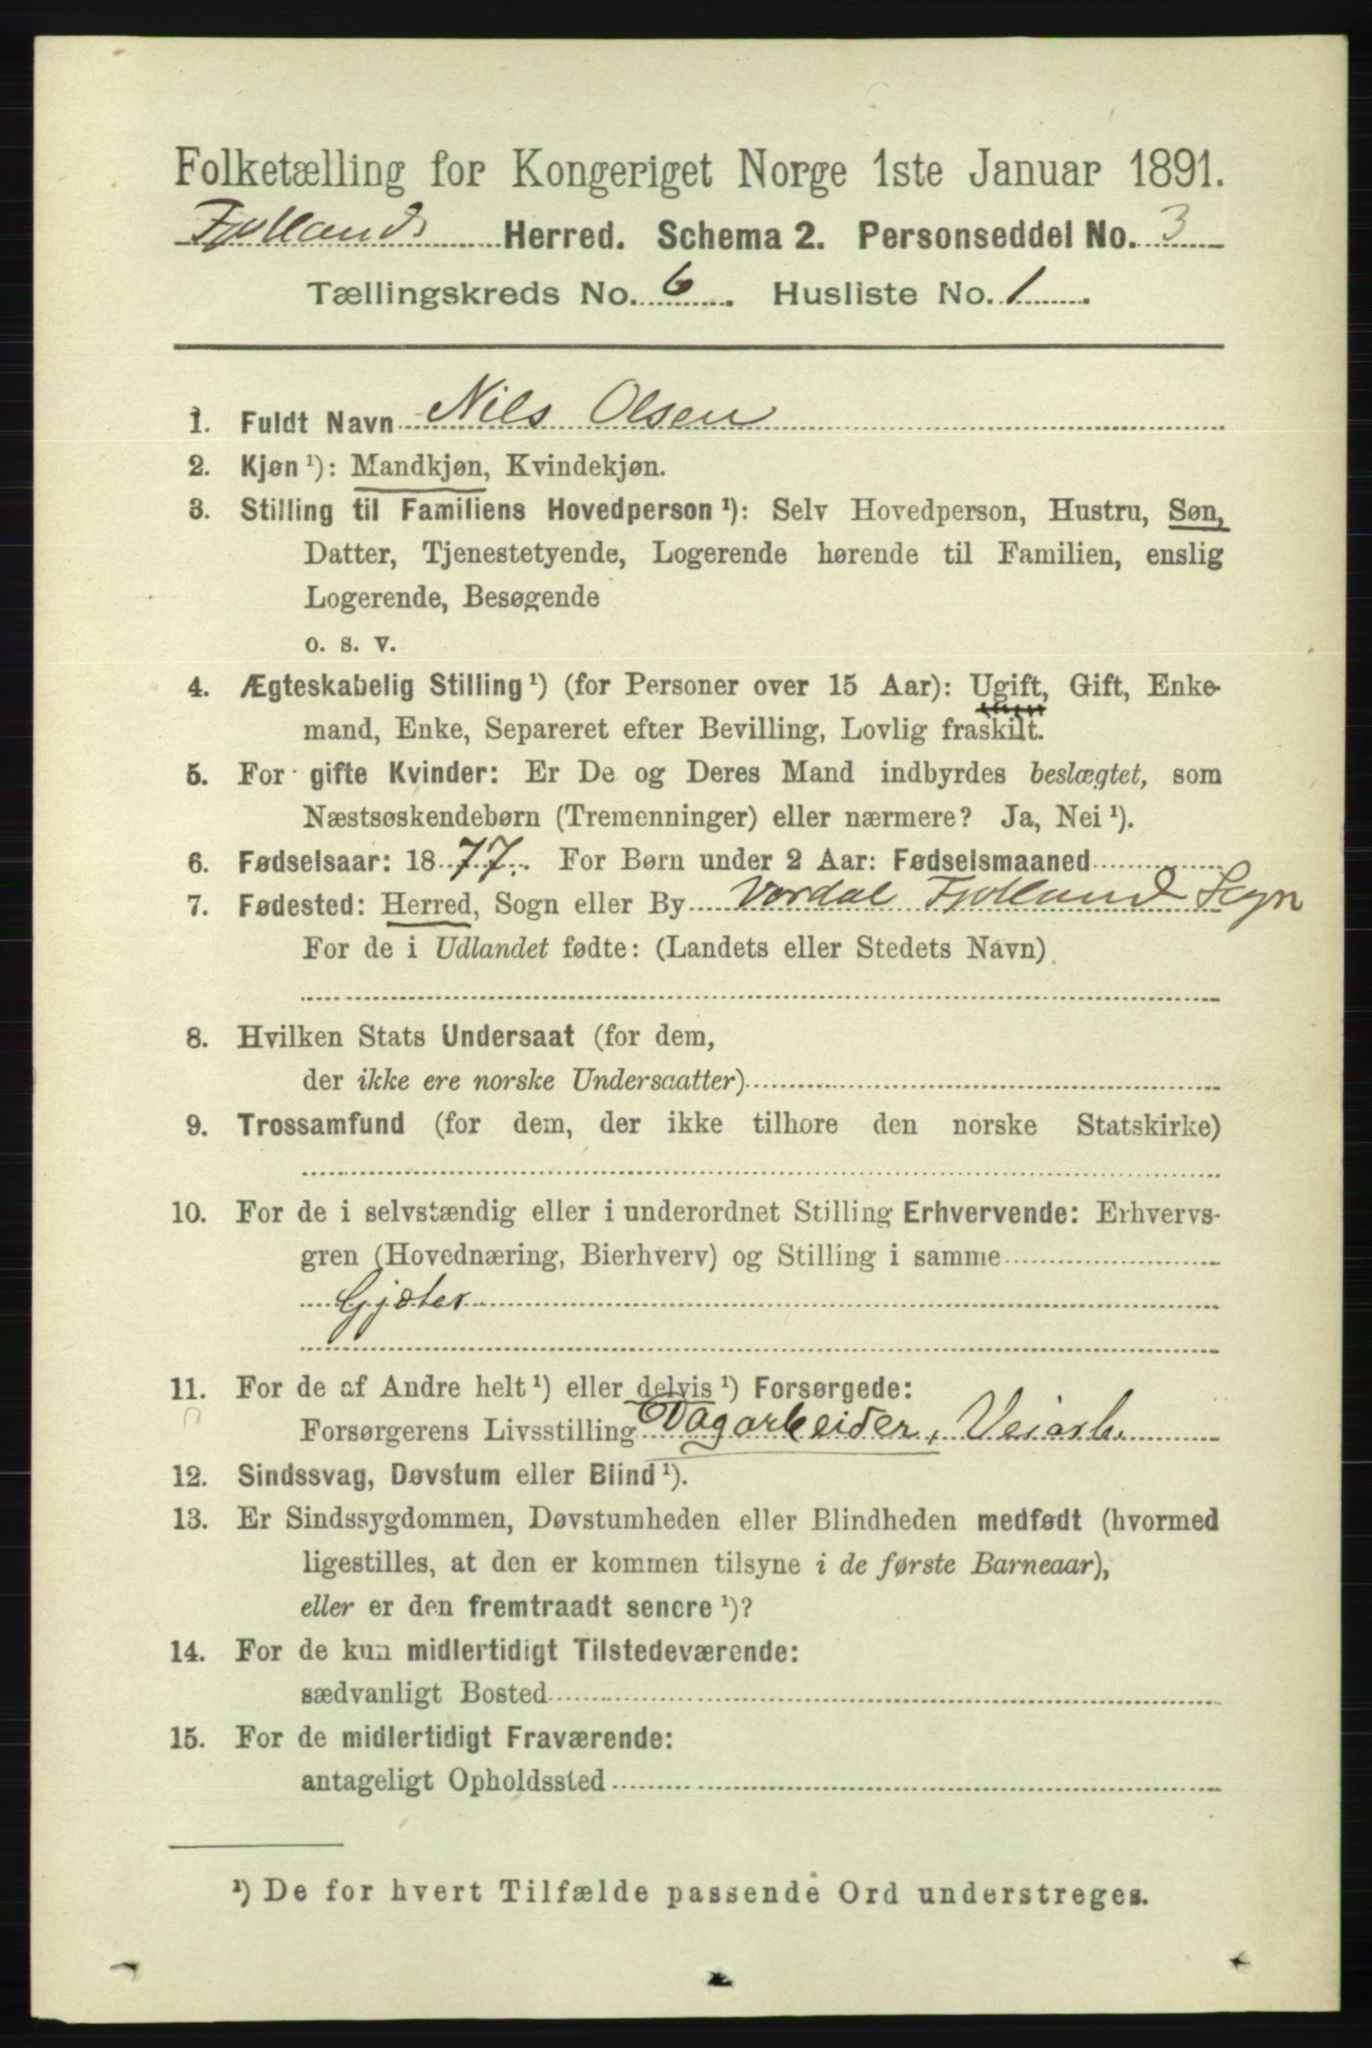 Folketælling for Kongeriget Norge 1ste Januar 1891.
Fjotlands Herred. Schema 2. Personseddel No. 3
Tællingskreds No. 6. Husliste No. 1.
1. Fuldt Navn Nils Olsen
2. Kjøn ¹): Mandkjøn, Kvindekjøn.
3. Stilling til Familiens Hovedperson ¹): Selv Hovedperson, Hustru, Søn,
Datter, Tjenestetyende, Logerende hørende til Familien, enslig
Logerende, Besøgende
o. s. v.
4. Ægteskabelig Stilling ¹) (for Personer over 15 Aar): Ugift, Gift, Enke-
mand, Enke, Separeret efter Bevilling, Lovlig fraskilt.
5. For gifte Kvinder: Er De og Deres Mand indbyrdes beslægtet, som
Næstsøskendebørn (Tremenninger) eller nærmere? Ja, Nei ¹).
6. Fødselsaar: 1877. For Børn under 2 Aar: Fødselsmaaned
7. Fødested: Herred, Sogn eller By Fjotland Sogn
For de i Udlandet fødte: (Landets eller Stedets Navn)
8. Hvilken Stats Undersaat (for dem,
der ikke ere norske Undersaatter)
9. Trossamfund (for dem, der ikke tilhore den norske Statskirke)
10. For de i selvstændig eller i underordnet Stilling Erhvervende: Erhvervs-
gren (Hovednæring, Bierhverv) og Stilling i samme
Gjæter
11. For de af Andre helt ¹) eller delvis ¹) Forsørgede:
Forsørgerens Livsstilling Dagarbeider, Veiarb.
12. Sindssvag, Døvstum eller Blind ¹).
13. Er Sindssygdommen, Døvstumheden eller Blindheden medfødt (hvormed
ligestilles, at den er kommen tilsyne i de første Barneaar),
eller er den fremtraadt senere ¹)?
14. For de kun midlertidigt Tilstedeværende:
sædvanligt Bosted
15. For de midlertidigt Fraværende:
antageligt Opholdssted
¹) De for hvert Tilfælde passende Ord understreges.